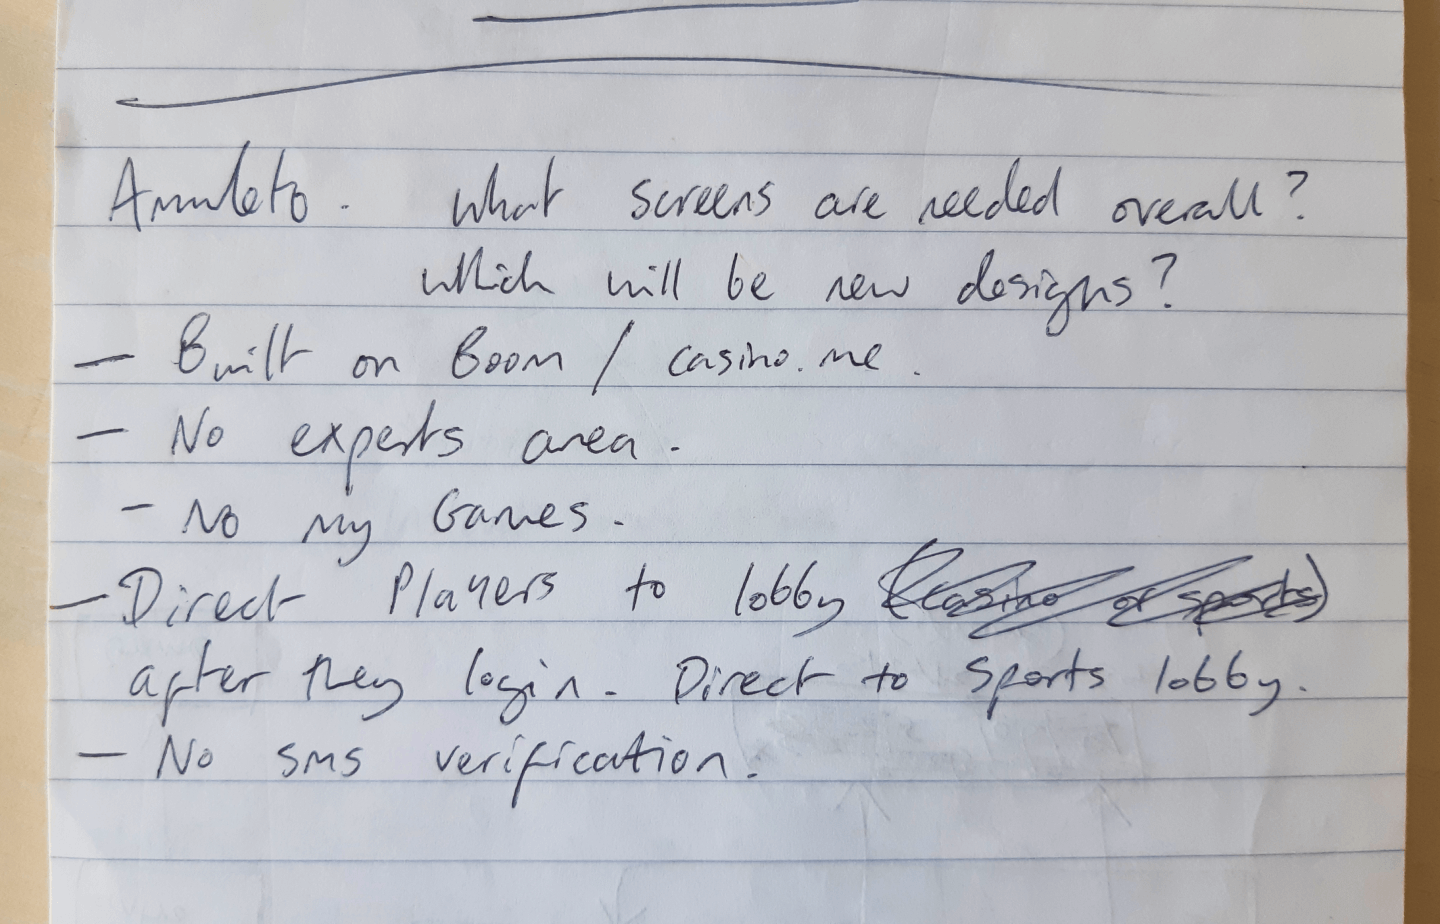 Amuleto. What screens are needed overall?
which will be new designs?
— Built on Boom / casino.me.
— No experts area.
- No my Games.
— Direct Players to lobby (casino or sports)
after they login. Direct to Sports lobby.
— No SMS verification.